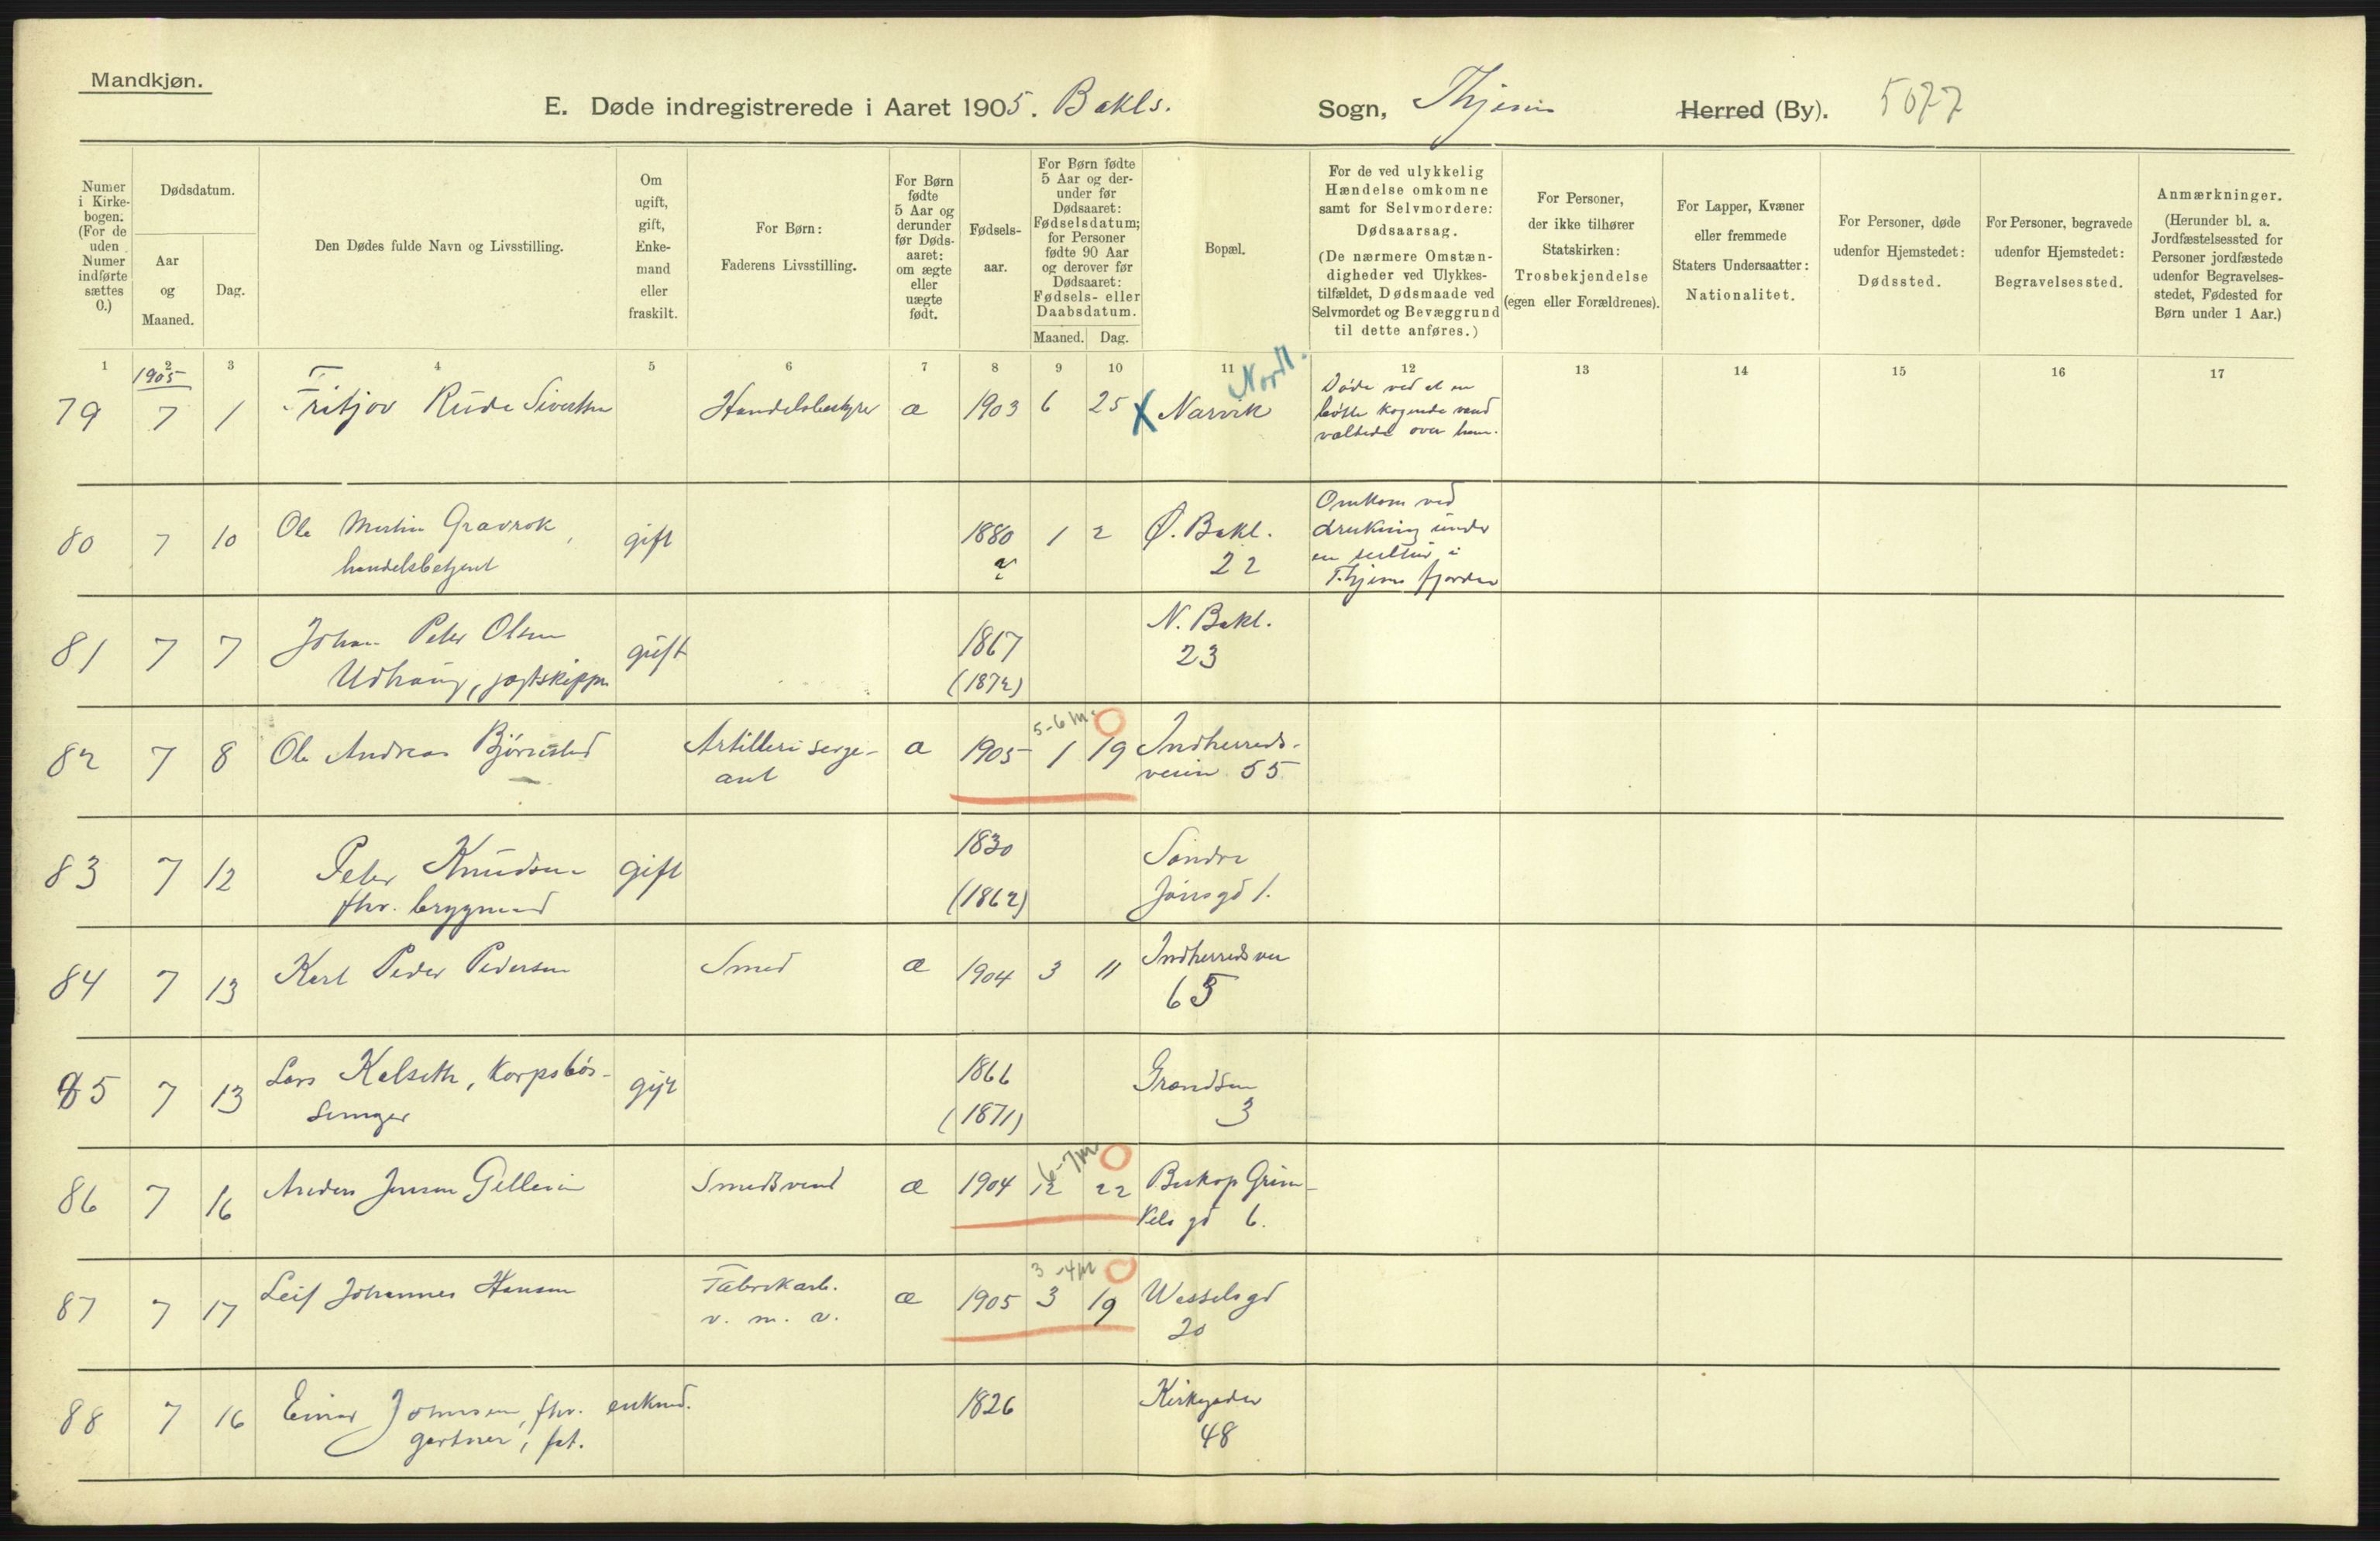 Mandkjøn.
E. Døde indregistrerede i Aaret 1905. Bakls. Sogn, Thjem Herred (By). 5077
Numer i Kirkebogen. (For de uden Numer indførte sættes 0.)
Dødsdatum.
Aar og Maaned.
Dag.
Den Dødes fulde Navn og Livsstilling.
Om ugift, gift, Enkemand eller fraskilt.
For Børn: Faderens Livsstilling.
For Børn fødte 5 Aar og derunder før Dødsaaret: om ægte eller uægte født.
Fødselsaar.
For Børn fødte 5 Aar og derunder før Dødsaaret: Fødselsdatum; for Personer fødte 90 Aar og derover før Dødsaaret: Fødsels- eller Daabsdatum.
Maaned. Dag.
Bopæl.
For de ved ulykkelig Hændelse omkomne samt for Selvmordere: Dødsaarsag.
(De nærmere Omstændigheder ved Ulykkestilfældet, Dødsmaade ved Selvmordet og Bevæggrund til dette anføres.)
For Personer, der ikke tilhører Statskirken: Trosbekjendelse (egen eller Forældrenes).
For Lapper, Kvæner eller fremmede Staters Undersaatter: Nationalitet.
For Personer, døde udenfor Hjemstedet: Dødssted.
For Personer, begravede udenfor Hjemstedet: Begravelsessted.
Anmærkninger.
(Herunder bl. a. Jordfæstelsessted for Personer jordfæstede udenfor Begravelsesstedet, Fødested for Børn under 1 Aar.)
1 2 3 4 5 6 7 8 9 10 11 12 13 14 15 16 17
1905
79 7 1 Fritjov Rude Sivertsen Handelsbestyrer æ 1903 6 25 X Narvik Nordl.
Døde ved at en
bøtte kogende vand
væltede over ham.
80 7 10 Ole Martin Gravrok,
handelsbetjent gift 1880 1 2 Ø. Bakl.
22
Omkom ved
drukning under
en seiltur i
Thjems fjorden
81 7 7 Johan Peter Olsen
Udhaug, jagtskipper gift 1867
(1872) N. Bakl.
23
82 7 8 Ole Andreas Bjørnstad Artilleri serge-
ant æ 1905 1 19 5-6 m. Indherreds-
veien 55
83 7 12 Peter Knudsen
fhv. brygmand gift 1830
(1862) Søndre
Jonsgd 1.
84 7 13 Karl Peder Pedersen Smed æ 1904 3 11 Indherredsvei
65
85 7 13 Lars Kalseth, Korpsbøs-
semager gift 1866
(1871) Grandsen
3
86 7 16 Anders Jensen Gellein Smedsvend æ 1904 12 22 6-7 m Biskop Grim-
kels gd 6.
87 7 17 Leif Johannes Hansen Fabrikarb.
v. m. v. æ 1905 3 19 3-4 m Wesselsgd
20
88 7 16 Einar Johnsen, fhv.
gartner, fat. enkmd. 1826 Kirkegaden
48